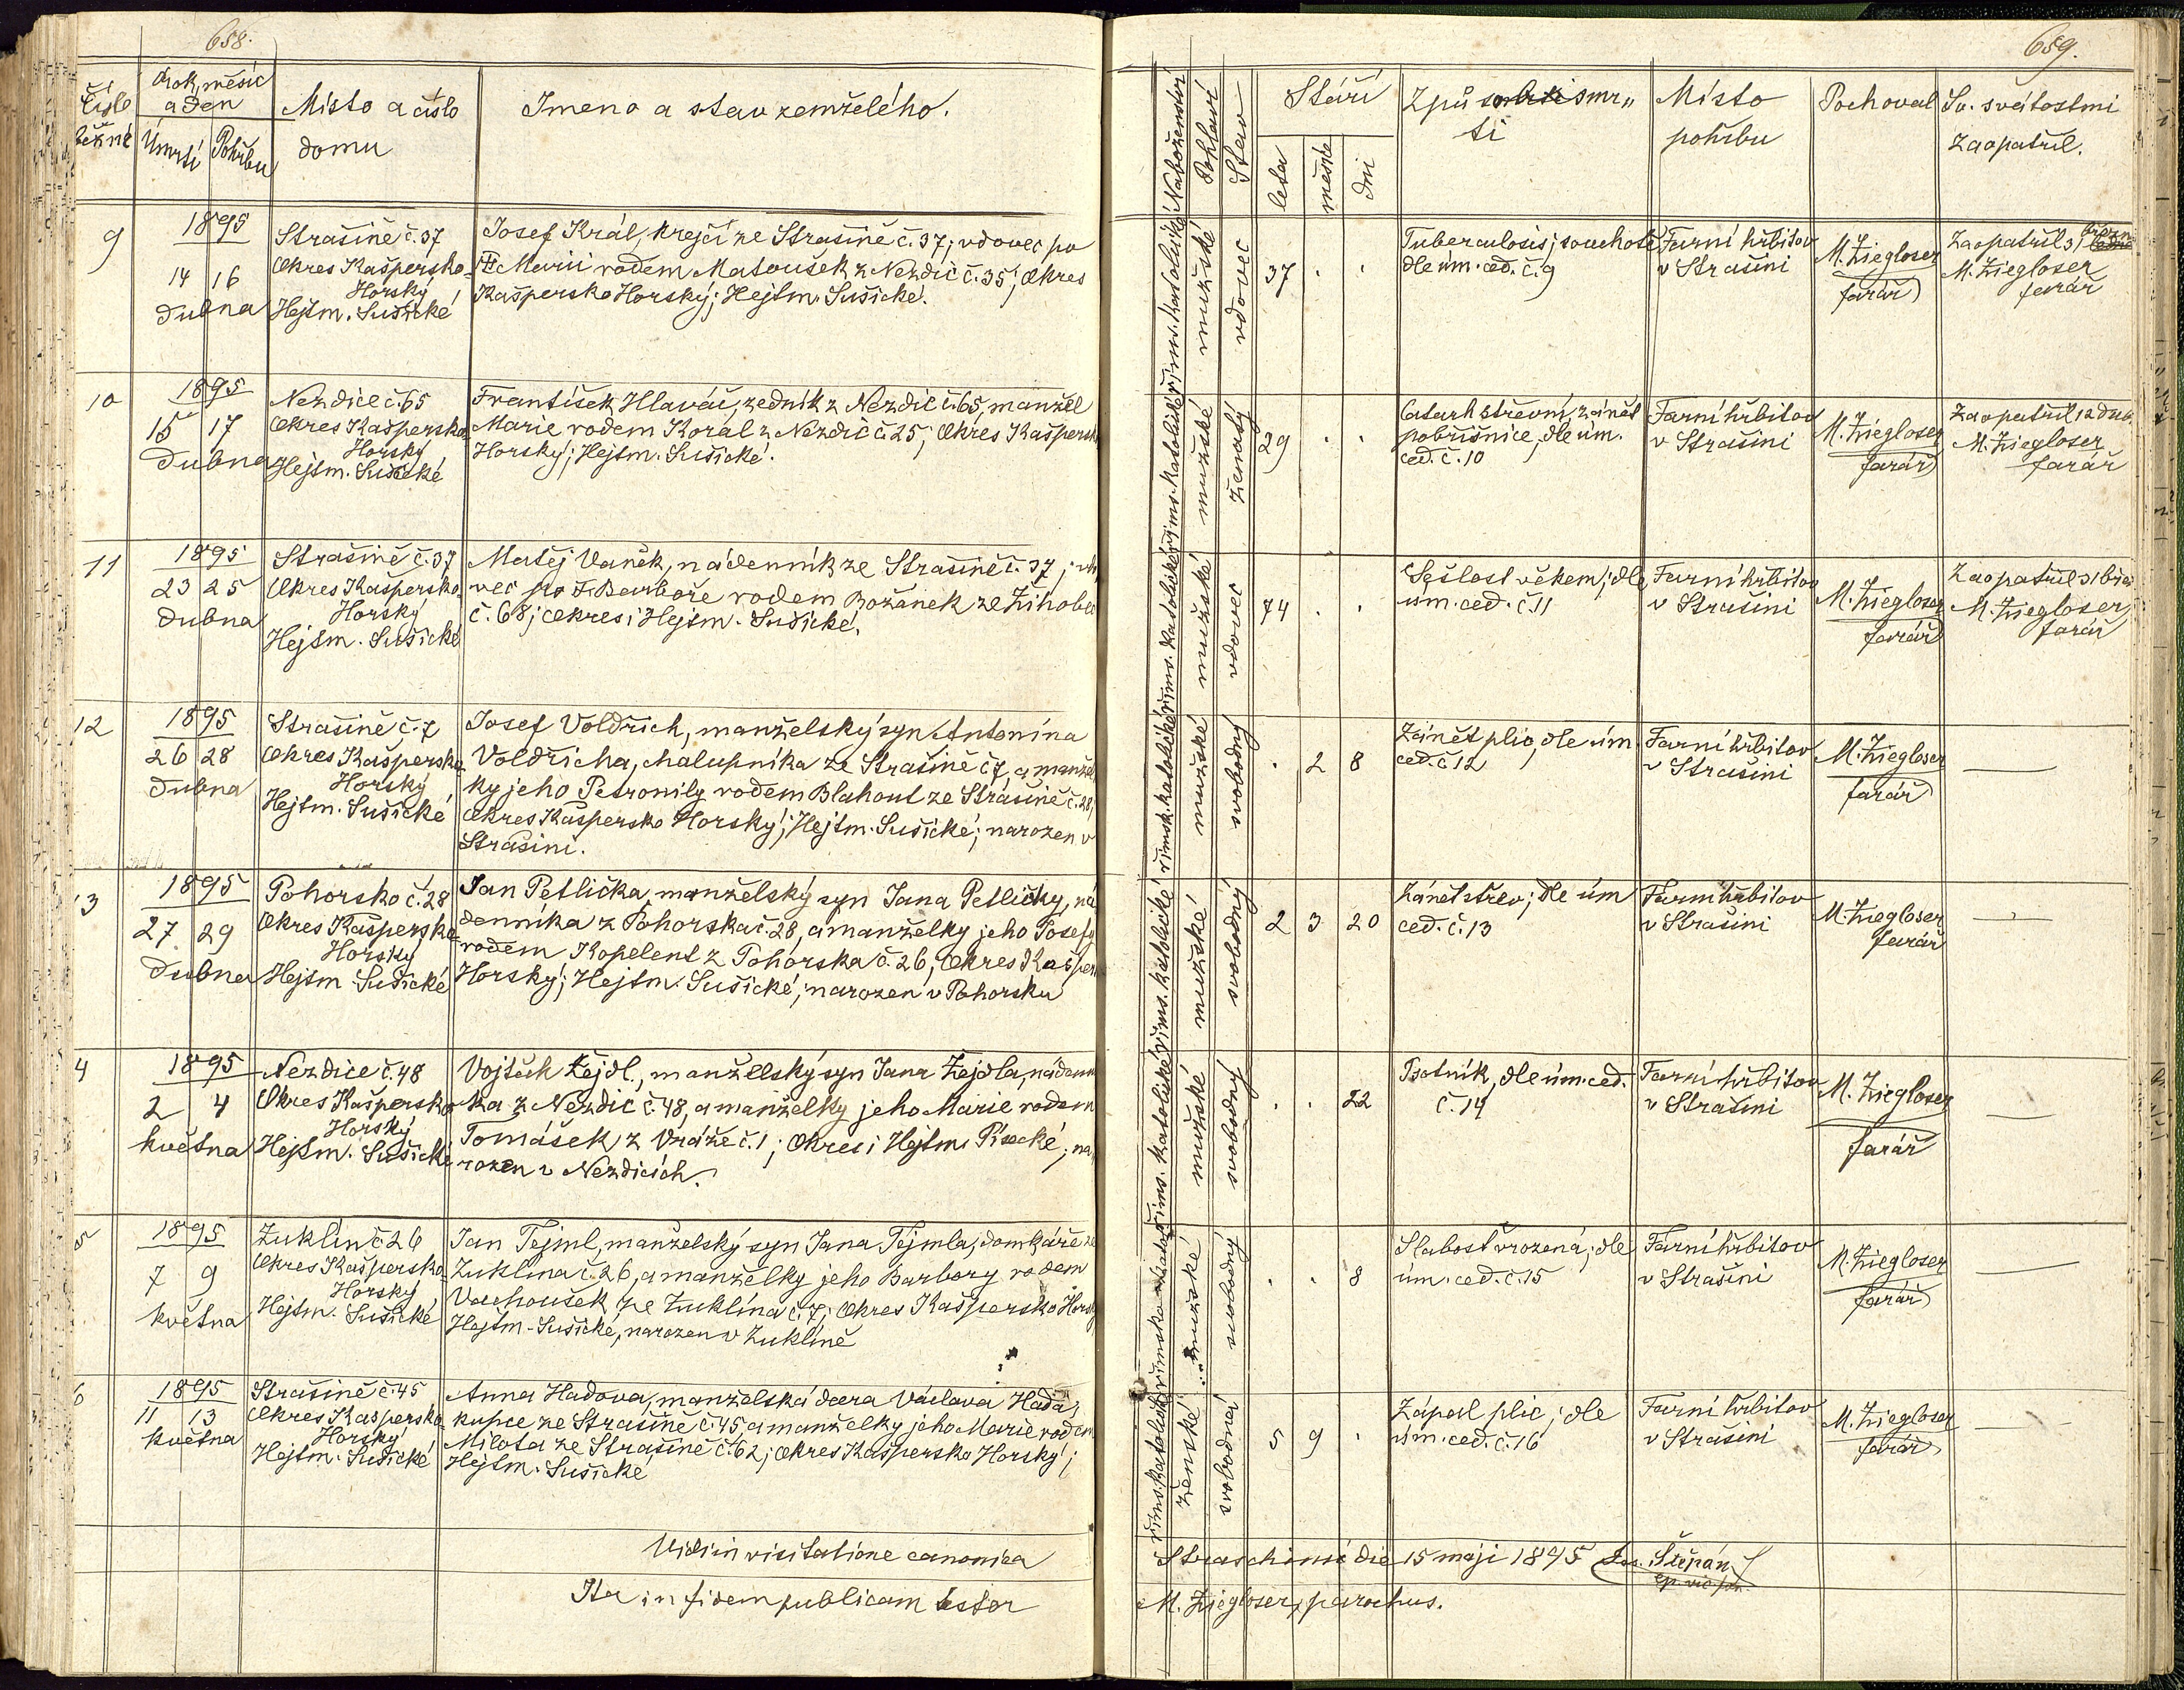 658.
Číslo
běžné
Rok, měsíc
a den
Úmrtí
Pohřbu
Místo a číslo
domu
Jmeno a stav zemřelého.
9
1895
14 16
dubna
Strašině č. 37
Okres Kašpersko-
Horský
Hejtm. Sušické
Josef Král, krejčí ze Strašině č. 37; vdovec po
Marii rodem Matoušek z Nezdic č. 35; Okres
Kašpersko Horský; Hejtm. Sušické.
10
1895
15 17
dubna
Nezdice č. 65
Okres Kašpersko-
Horský
Hejtm. Sušické
František Hlaváč, zedník z Nezdic č. 65, manžel
Marie rodem Korál z Nezdic č. 25; Okres Kaspersk
Horský; Hejtm. Sušické.
11
1895
23 25
dubna
Strašině č. 37
Okres Kašpersko-
Horský
Hejtm. Sušické
Matěj Vaněk, nádenník ze Strašině č. 37; vdo
vec po Barboře rodem Božánek ze Žihobec
č. 68; Okres i Hejtm. Sušické.
12
1895
26 28
dubna
Strašině č. 7
Okres Kašpersko-
Horský
Hejtm. Sušické
Josef Voldřich, manželský syn Antonína
Voldřicha, chalupníka ze Strašině č. 7, a manžel
ky jeho Petronily rodem Blahout ze Strašině č. 28;
Okres Kašpersko Horský; Hejtm. Sušické; narozen v
Strašini.
13
1895
27 29
dubna
Pohorsko č. 28
Okres Kašpersko-
Horský
Hejtm Sušické
Jan Petlička, manželský syn Jana Petličky, ná
denníka z Pohorska č. 28, a manželky jeho Josefy
rodem Kopelent z Pohorska č. 26; Okres Kašper
Horský; Hejtm. Sušické; narozen v Pohorsku
4
1895
2 4
května
Nezdice č. 48
Okres Kašpersko-
Horský
Hejtm. Sušické
Vojtěch Žejdl, manželský syn Jana Žejdla, nádenn
ka z Nezdic č. 48, a manželky jeho Marie rodem
Tomášek z Vráže č. 1; Okres i Hejtm. Písecké; na
rozen v Nezdicích.
5
1895
7 9
května
Žuklín č 26
Okres Kašpersko-
Horský
Hejtm. Sušické
Jan Tejml, manželský syn Jana Tejmla, domkáře ze
Žuklína č. 26, a manželky jeho Barbory rodem
Vachoušek ze Žuklína č. 7; Okres Kašpersko Horský
Hejtm. Sušické, narozen v Žuklíně
6
1895
11 13
května
Strašině č. 45
Okres Kašpersko-
Horský
Hejtm. Sušické
Anna Hadova, manželská dcera Václava Hada,
kupce ze Strašině č. 45, a manželky jeho Marie rodem
Milota ze Strašině č. 62; Okres Kašpersko Horský;
Hejtm. Sušické
Vidi in visitatione canonica
Ita in fidem publicam testor
659.
Náboženství
Pohlaví
Stav
Stáří
leta
měsíce
dni
Způsob smr„
ti
Místo
pohřbu
Pochoval
Sv. svátostmi
zaopatřil.
říms. katolické
mužské
vdovec
37 . .
Tuberculosis; souchotě
dle úm. ced. č. 9
Farní hřbitov
v Strašini
M. Ziegloser
farář
Zaopatřil 31 březn
M. Ziegloser
farář
říms. katolické
mužské
ženatý
29 . .
Catarh střevní, zánět
pobřišnice, dle úm.
ced. č. 10
Farní hřbitov
v Strašini
M. Ziegloser
farář
Zaopatřil 12 dub.
M. Ziegloser
farář
říms. katolické
mužské
vdovec
74 . .
Sešlost věkem; dle
úm. ced. č. 11
Farní hřbitov
v Strašini
M. Ziegloser
farář
Zaopatřil 31 bře
M. Ziegloser,
farář
římsk. katolické
mužské
svobodný
. 2 8
Zánět plic, dle úm
ced. č 12
Farní hřbitov
v Strašini
M. Ziegloser
farář
říms. katolické
mužské
svobodný
2 3 20
Zánět střev; dle úm
ced. č. 13
Farní hřbitov
v Strašini
M. Ziegloser
farář
říms. katolické
mužské
svobodný
. . 22
Psotník, dle úm. ced.
č. 14
Farní hřbitov
v Strašini
M. Ziegloser
farář
mužské
svobodný
. . 8
Slabost vrozená; dle
úm. ced. č. 15
Farní hřbitov
v Strašini
M. Ziegloser
farář
říms. katolické
ženské
svobodná
5 9 .
Zápal plic; dle
úm. ced. č. 16
Farní hřbitov
v Strašini
M. Ziegloser
farář
die 15 maji 1895 Jos. Štěpán
M. Ziegloser, parochus.